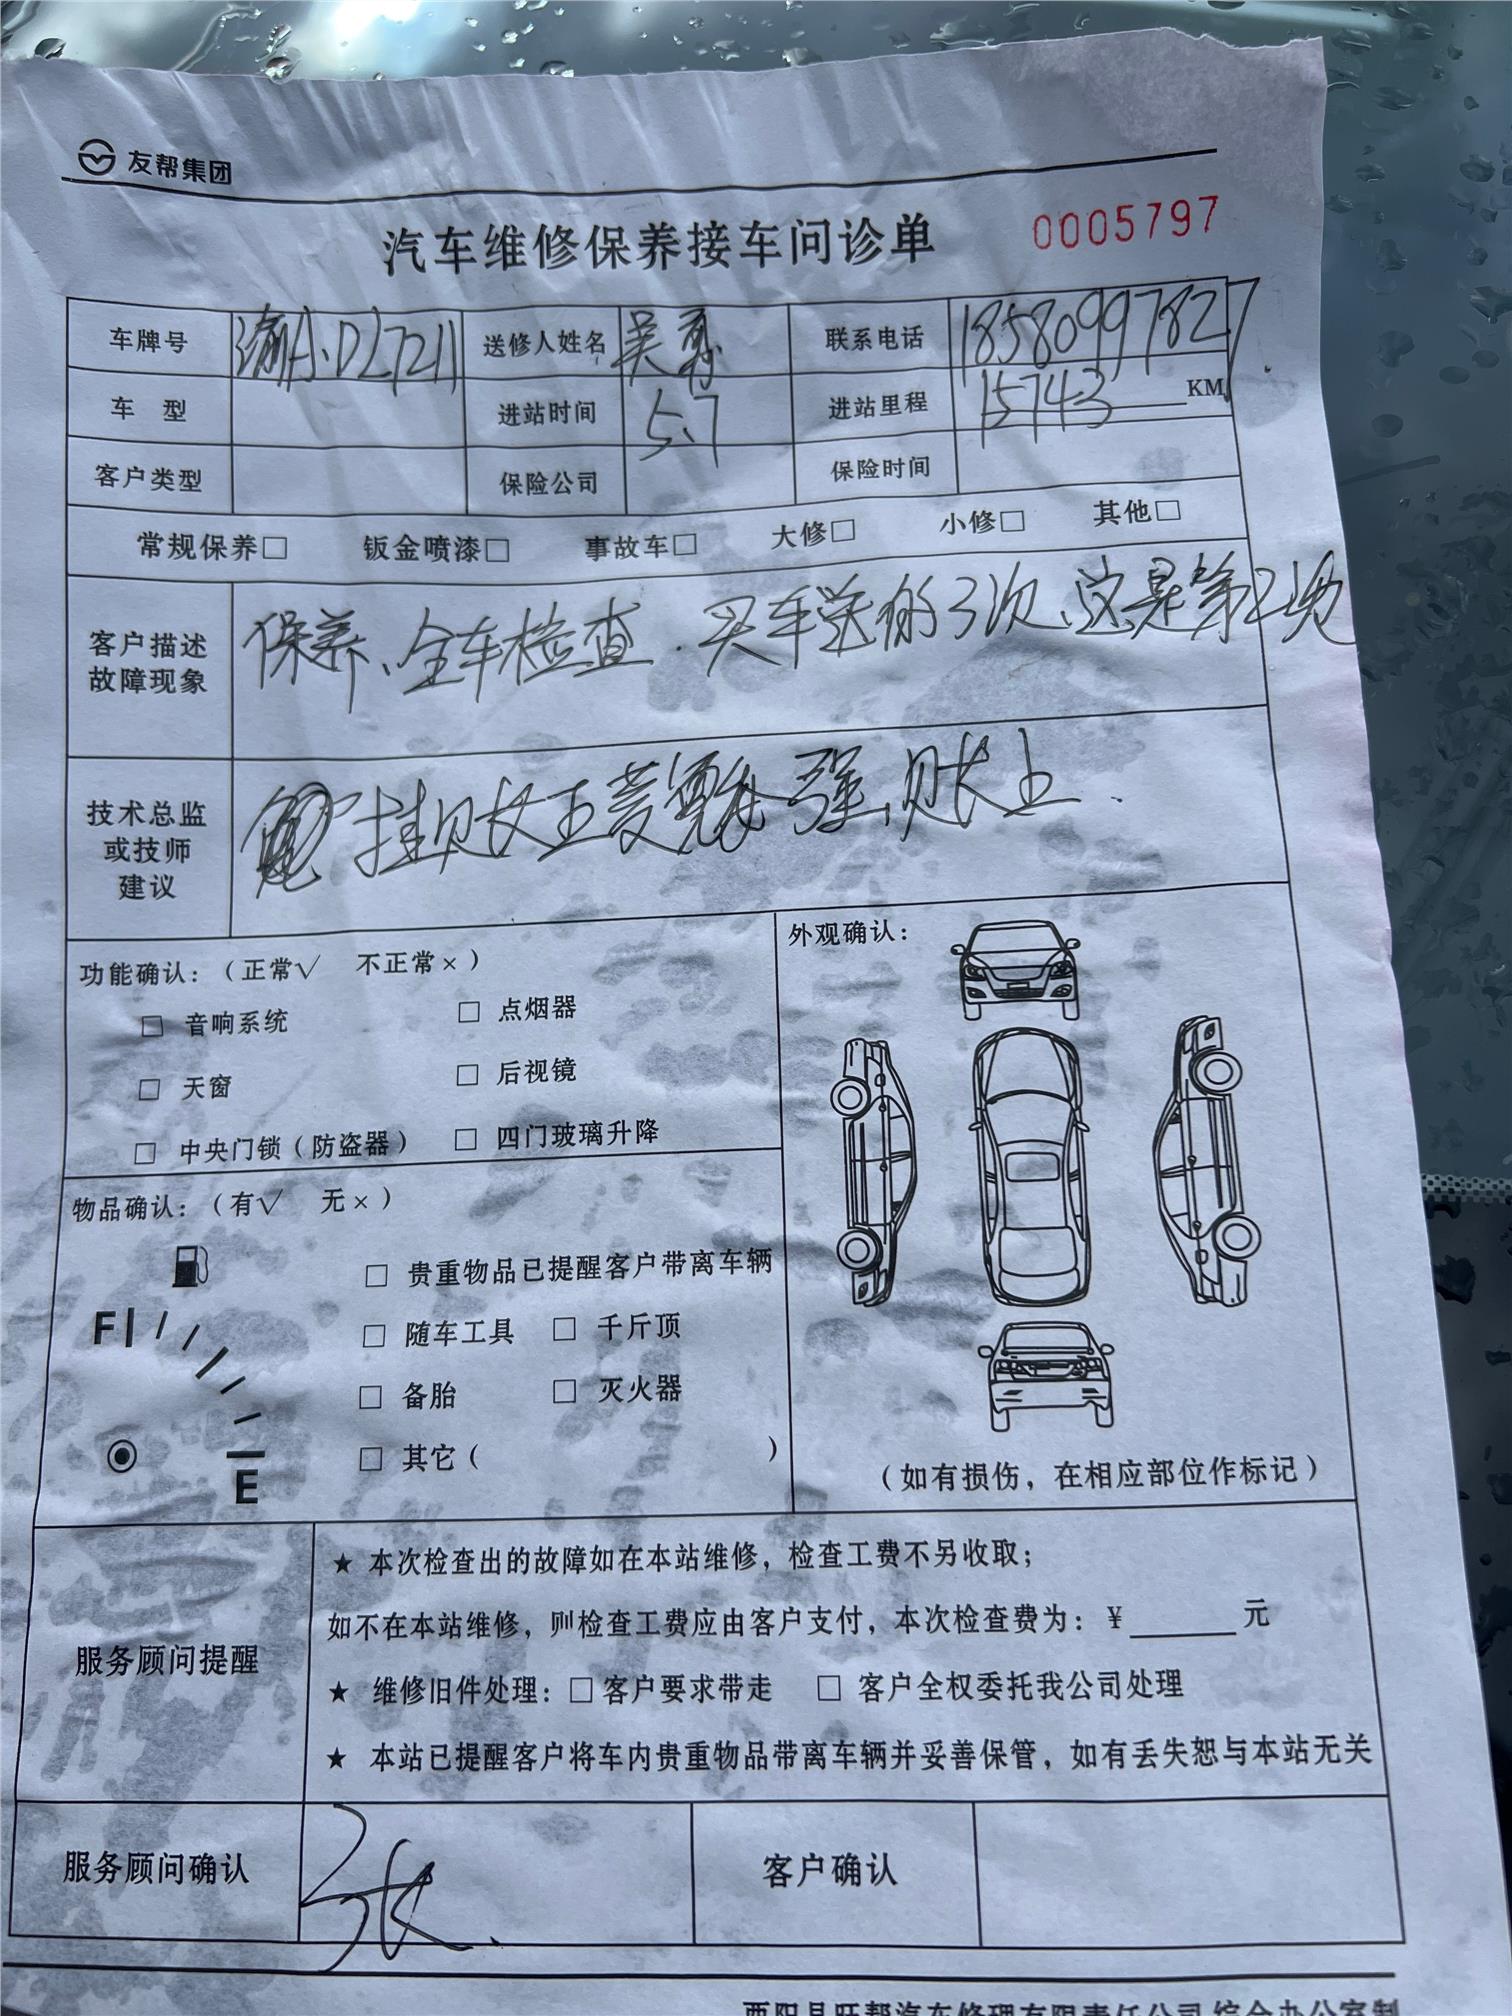 友帮集团
汽车维修保养接车问诊单 0005797
车牌号 渝A.DL7211 送修人姓名 吴勇 联系电话 18580997827
车 型 进站时间 5.7 进站里程 15743 KM
客户类型 保险公司 保险时间
常规保养□ 钣金喷漆□ 事故车□ 大修□ 小修□ 其他□
客户描述
故障现象
保养、全车检查.买车送的3次、这是第2次
技术总监
或技师
建议
强
功能确认：（正常√ 不正常×）
□ 音响系统 □ 点烟器
□ 天窗 □ 后视镜
□ 中央门锁（防盗器） □ 四门玻璃升降
外观确认：
物品确认：（有√ 无×）
□ 贵重物品已提醒客户带离车辆
□ 随车工具 □ 千斤顶
□ 备胎 □ 灭火器
□ 其它（ ）
F
E
（如有损伤，在相应部位作标记）
服务顾问提醒
★ 本次检查出的故障如在本站维修，检查工费不另收取；
如不在本站维修，则检查工费应由客户支付，本次检查费为：￥______元
★ 维修旧件处理：□客户要求带走 □ 客户全权委托我公司处理
★ 本站已提醒客户将车内贵重物品带离车辆并妥善保管，如有丢失恕与本站无关
服务顾问确认 客户确认
酉阳县旺帮汽车修理有限责任公司 综合办公室制